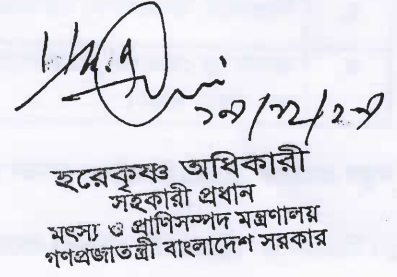 হরেকৃষ্ণ অধিকারী
সহকারী প্রধান
মৎস্য ও প্রাণিসম্পদ মন্ত্রণালয়
গণপ্রজাতন্ত্রী বাংলাদেশ সরকার